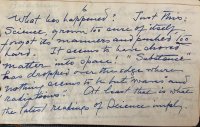 "What has happened? Just this:
Science, grown too sure of itself,
forgot its manners and pushed too
hard. It seems to have shoved
matter into space! "Substance
has dropped over the edge where
nothing seems to be but mass and
radiations". At least that is what
the latest readings of Science imply.